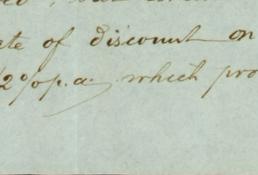 ate of discount on
/2% p.a. which pro